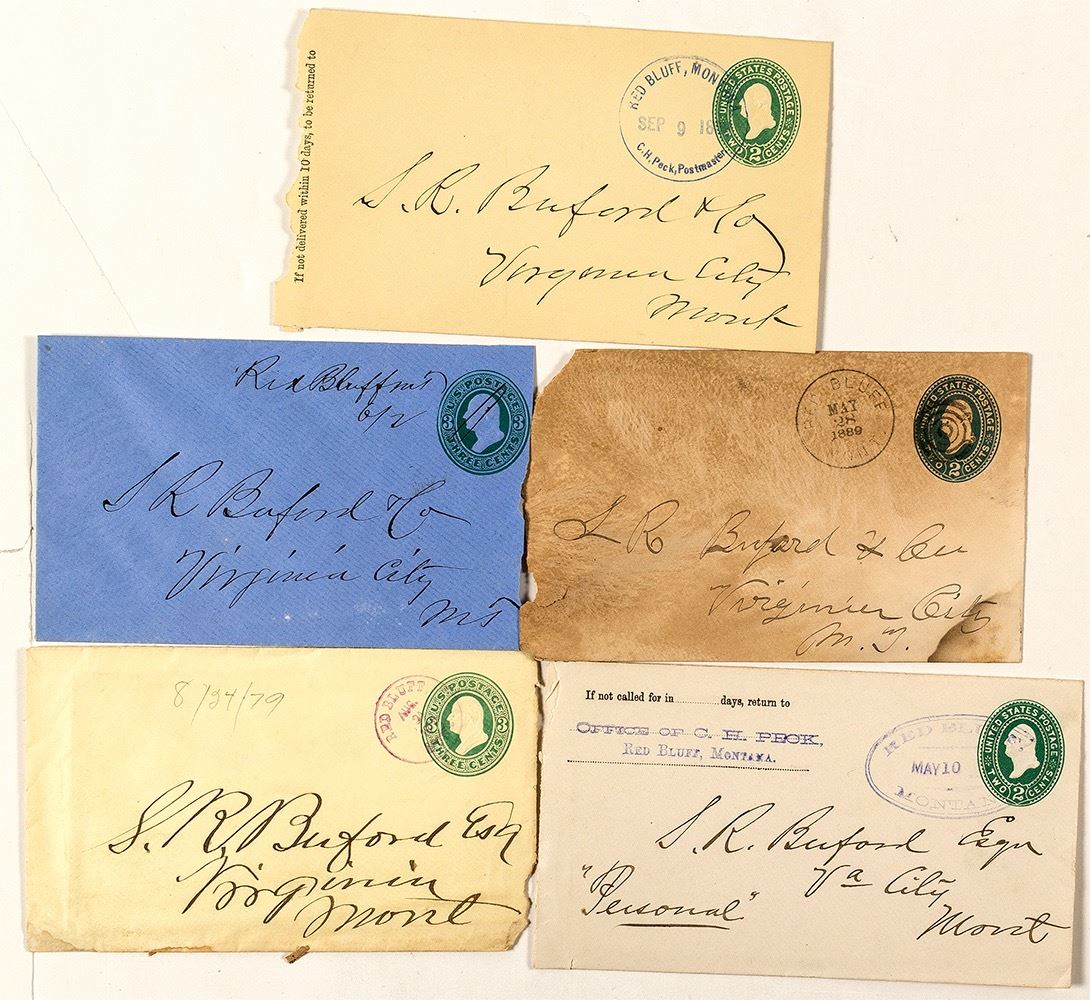 If not delivered within 10 days, to be returned to
RED BLUFF, MON
SEP 9 18
C.H. Peck, Postmaster
UNITED STATES POSTAGE
TWO 2 CENTS
S. R. Buford & Co
Virginia City
Mont
Red Bluff
U.S. POSTAGE
3 THREE CENTS 3
S R Buford & Co
Virginia City
MT
RED BLUFF
MAY
28
1889
MONT.
UNITED STATES POSTAGE
TWO 2 CENTS
S R Buford & Co
Virginia City
M. T.
8/24/79
RED BLUFF
AUG.
U.S. POSTAGE
3 THREE CENTS 3
S. R. Buford Esq
Virginia
Mont
If not called for in ........... days, return to
OFFICE OF C. H. PECK,
RED BLUFF, MONTANA.
RED BLU
MAY 10
MONTAN
UNITED STATES POSTAGE
TWO 2 CENTS
S. R. Buford Esqr
Va City
"Personal"
Mont